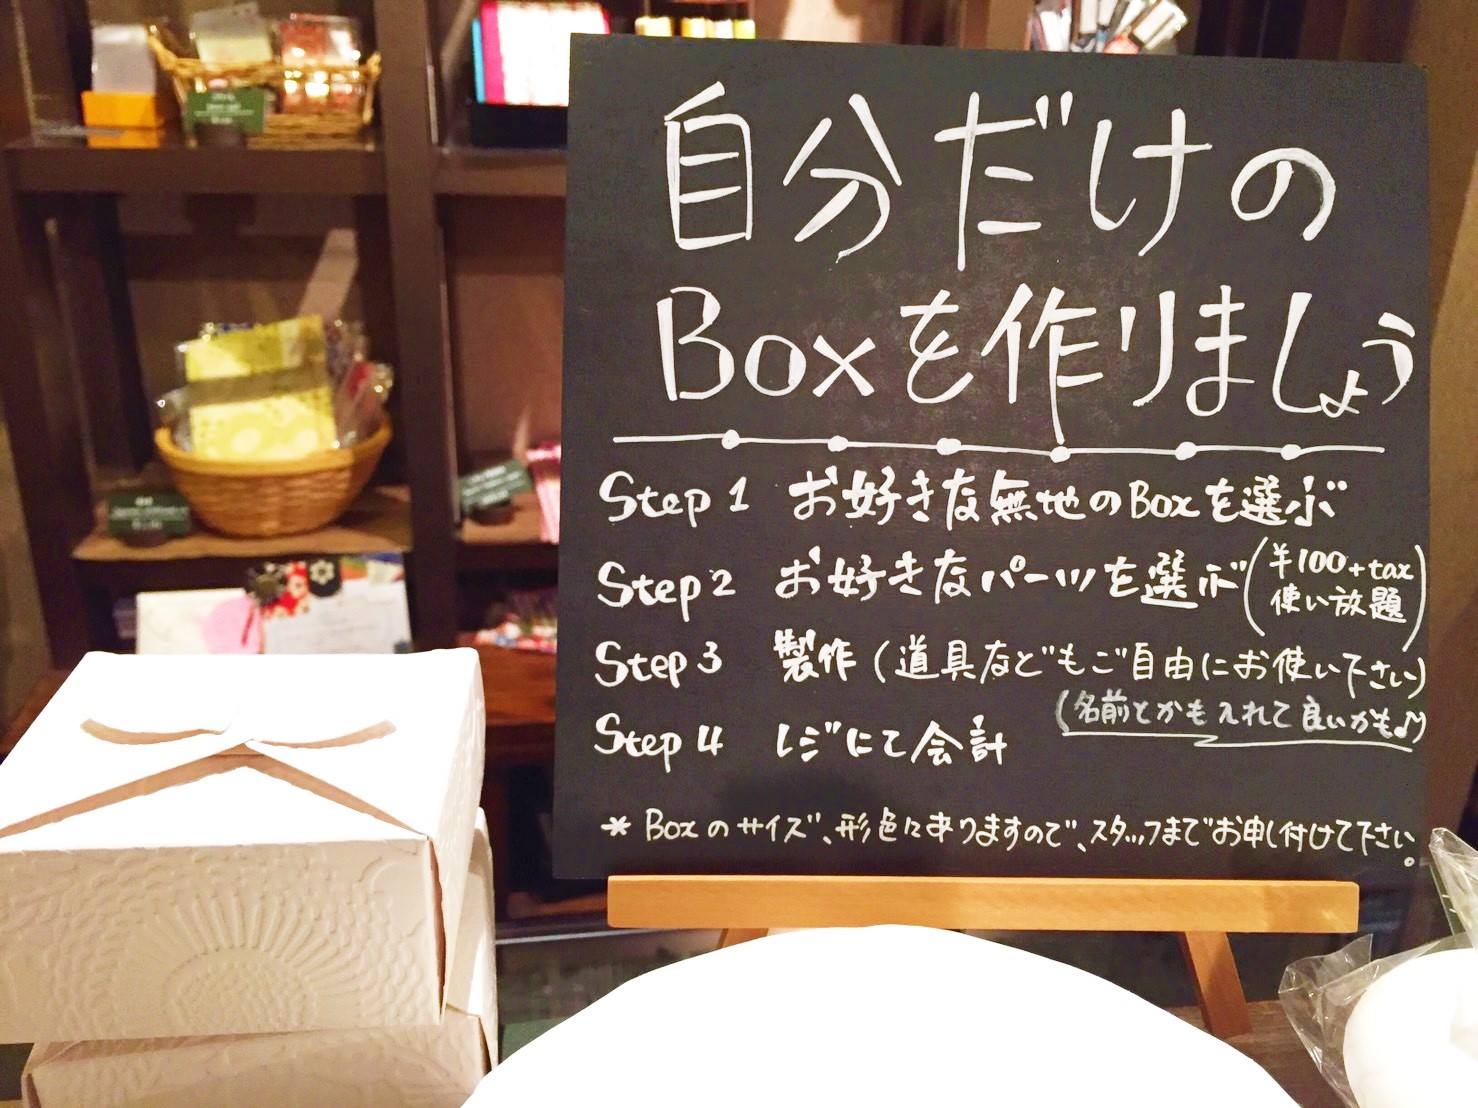 自分だけの
Boxを作りましょう
Step 1 お好きな無地のBoxを選ぶ
Step 2 お好きなパーツを選ぶ(¥100+tax
使い放題)
Step 3 製作(道具などもご自由にお使い下さい)
(名前とかも入れて良いかも♪)
Step 4 レジにて会計
* Boxのサイズ、形色々ありますので、スタッフまでお申し付けて下さい。